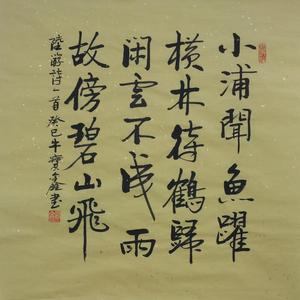 小浦聞魚躍
横林待鶴歸
閑雲不成雨
故傍碧山飛
陸游詩一首癸巳牛寶書